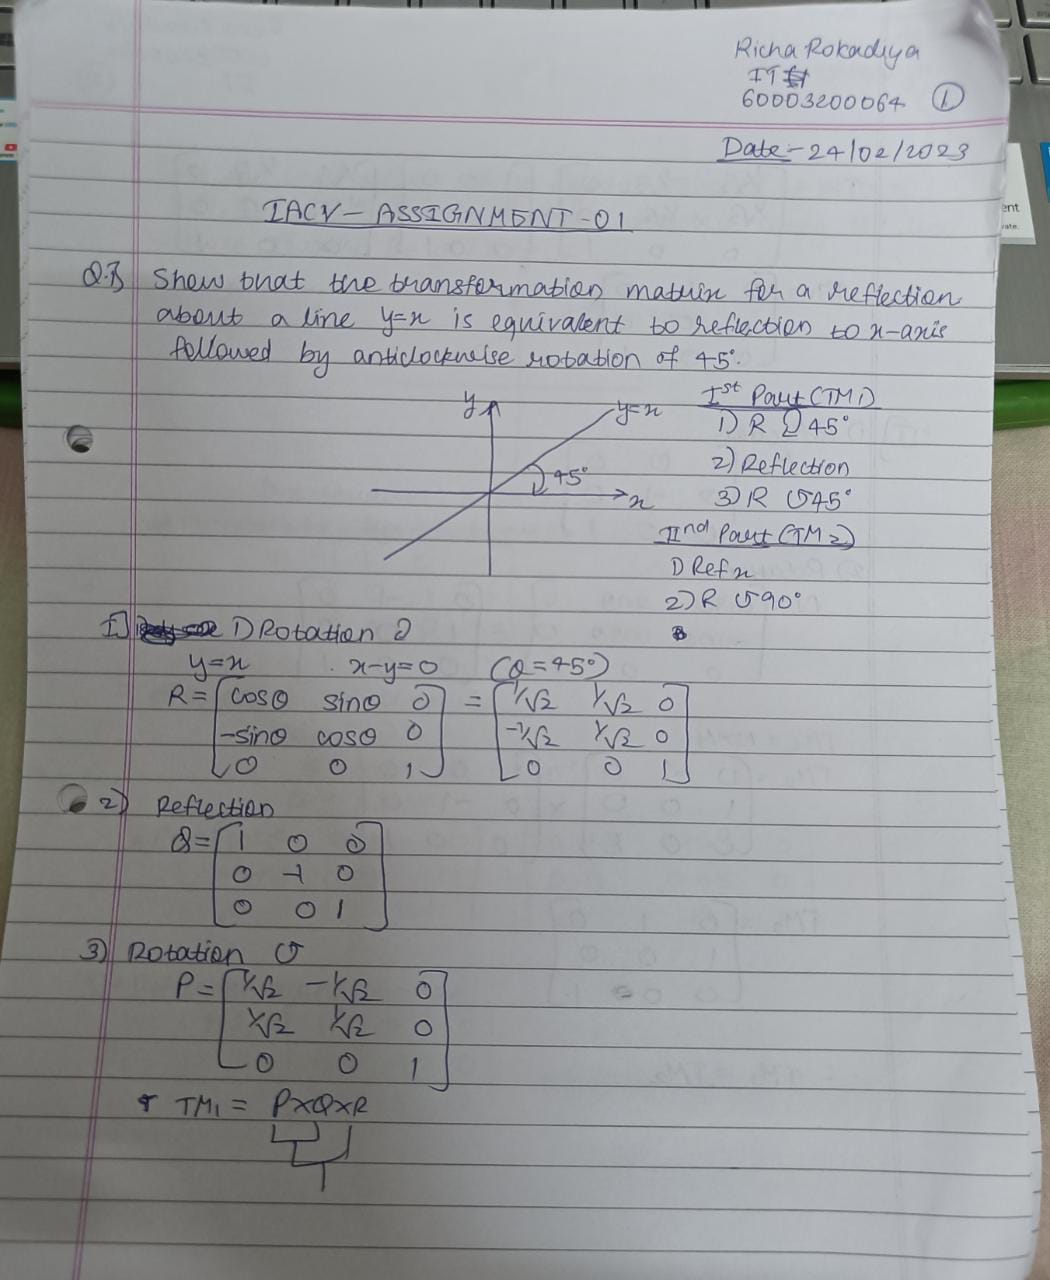 Richa Rokadiya
IT
60003200064 1
Date - 24/02/2023
IACV - ASSIGNMENT - 01
Q.1) Show that the transformation matrix for a reflection
about a line y=x is equivalent to reflection to x-axis
followed by anticlockwise rotation of 45°.
y y=x 45° x
Ist Part (TM1)
1) R ↻ 45°
2) Reflection
3) R ↺ 45°
IInd Part (TM2)
1) Ref x
2) R ↺ 90°
I] 1) Rotation ↻
y=x x-y=0 (θ=45°)
R = [cosθ sinθ 0 = [1/√2 1/√2 0
-sinθ cosθ 0 -1/√2 1/√2 0
0 0 1] 0 0 1]
2) Reflection
Q = [1 0 0
0 -1 0
0 0 1]
3) Rotation ↺
P = [1/√2 -1/√2 0
1/√2 1/√2 0
0 0 1]
TM1 = P×Q×R
ent
vate.